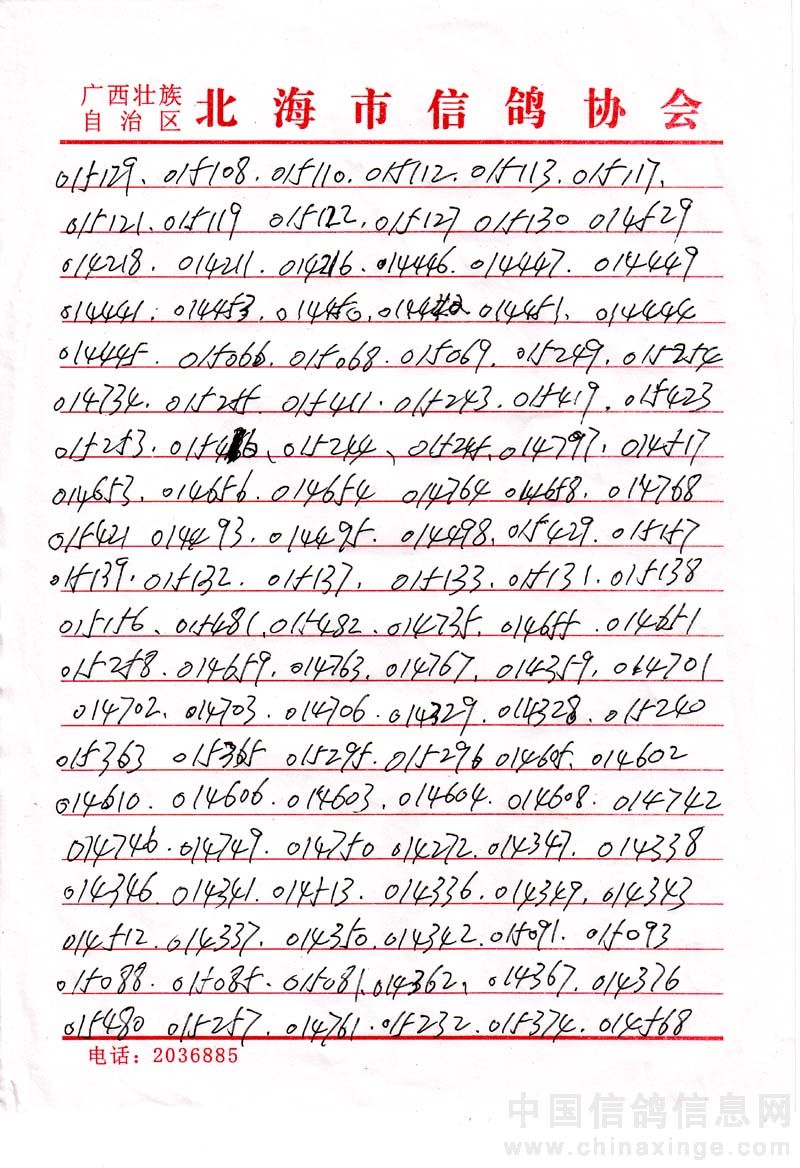 广西壮族
自治区 北海市信鸽协会
015129. 015108. 015110. 015112. 015113. 015117.
015121. 015119 015122. 015127 015130 014529
014218. 014211. 014216. 014446. 014447. 014449
014441. 014453. 014450. 014451. 014444
014445. 015066. 015068. 015069. 015249. 015254
014734. 015255. 015411. 015243. 015419. 015423
015253. 015244、 015245. 014797. 014517
014653. 014656. 014654 014764 014658. 014768
015421 014493. 014495. 014498. 015429. 015157
015139. 015132. 015137. 015133. 015131. 015138
015156. 015481. 015482. 014735. 014655. 014651
015258. 014659. 014763. 014767. 014359. 014701
014702. 014703. 014706. 014329. 014328. 015240
015363 015365 015295. 015296 014605. 014602
014610. 014606. 014603. 014604. 014608. 014742
014746. 014749. 014750 014272. 014347. 014338
014346. 014341. 014513. 014336. 014349. 014343
014512. 014337. 014350. 014342. 015091. 015093
015088. 015085. 015081. 014362、 014367. 014376
015480 015257. 014761. 015232. 015374. 014568
电话：2036885
中国信鸽信息网
www.chinaxinge.com